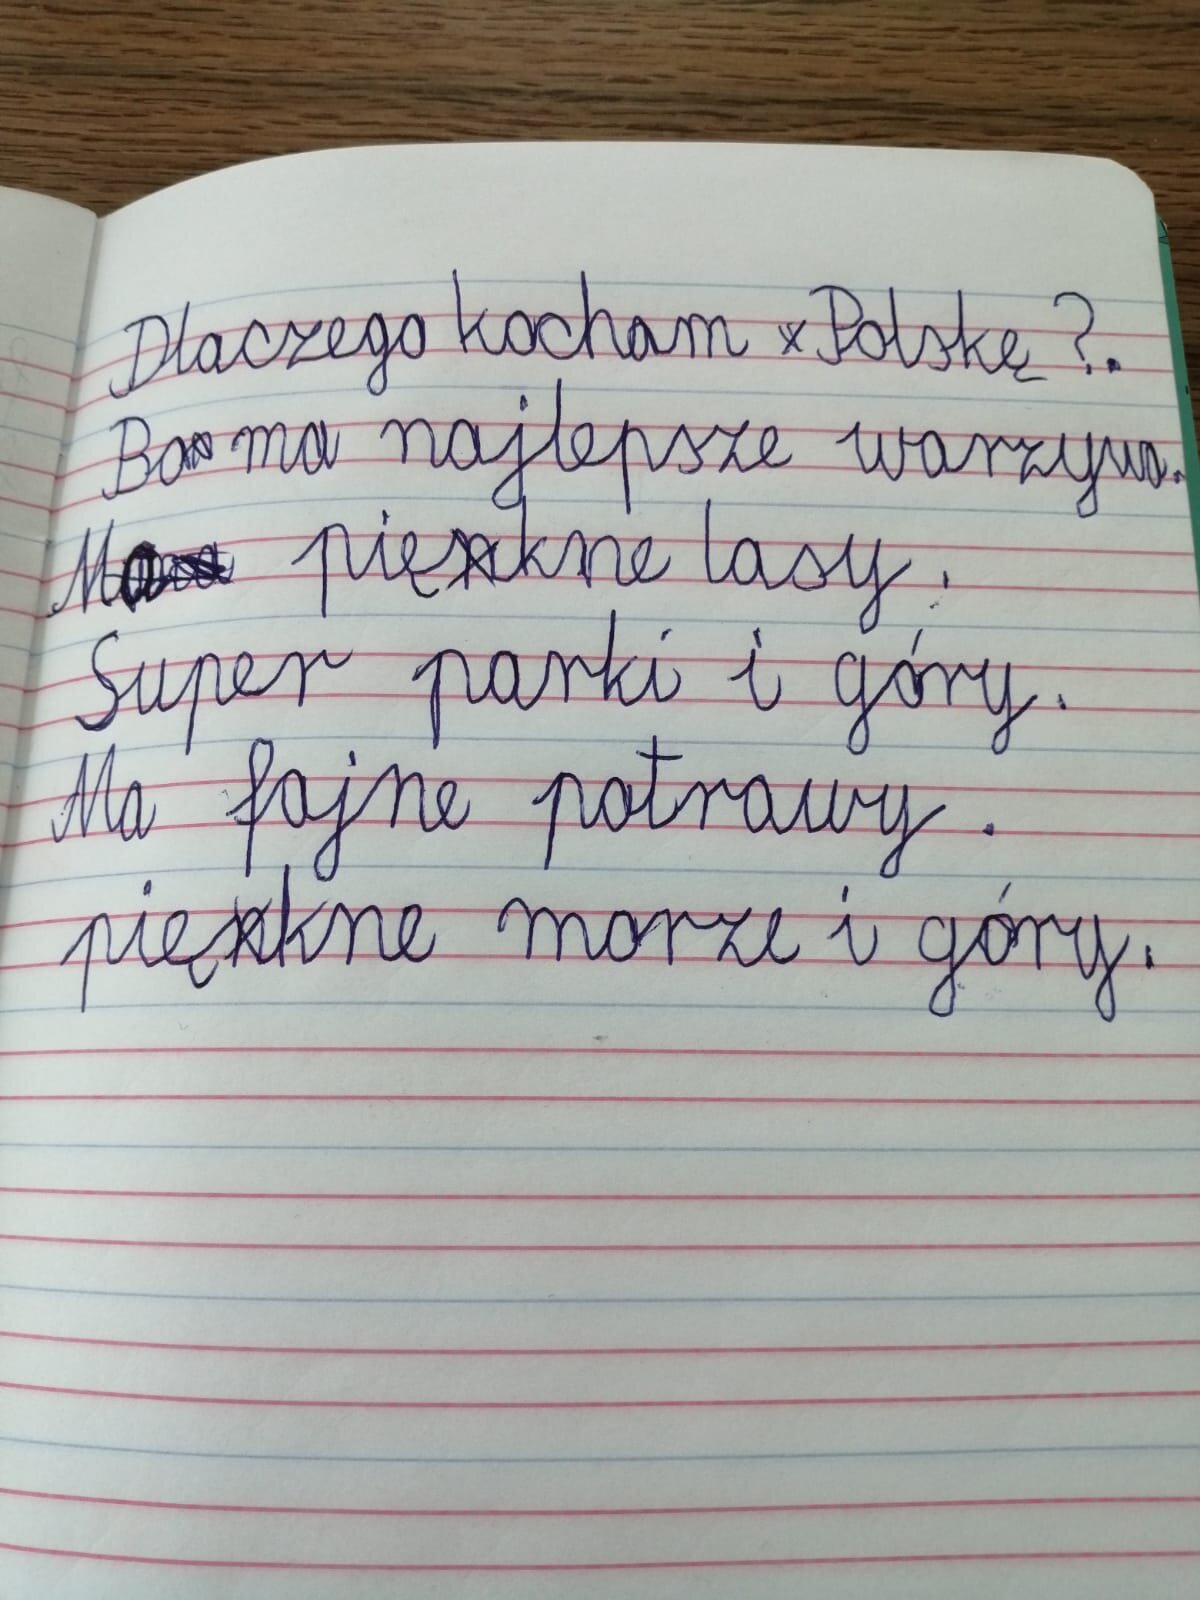 Dlaczego kocham Polskę?.
Bo ma najlepsze warzywa.
Ma piękne lasy.
Super parki i góry.
Ma fajne potrawy.
piękne morze i góry.